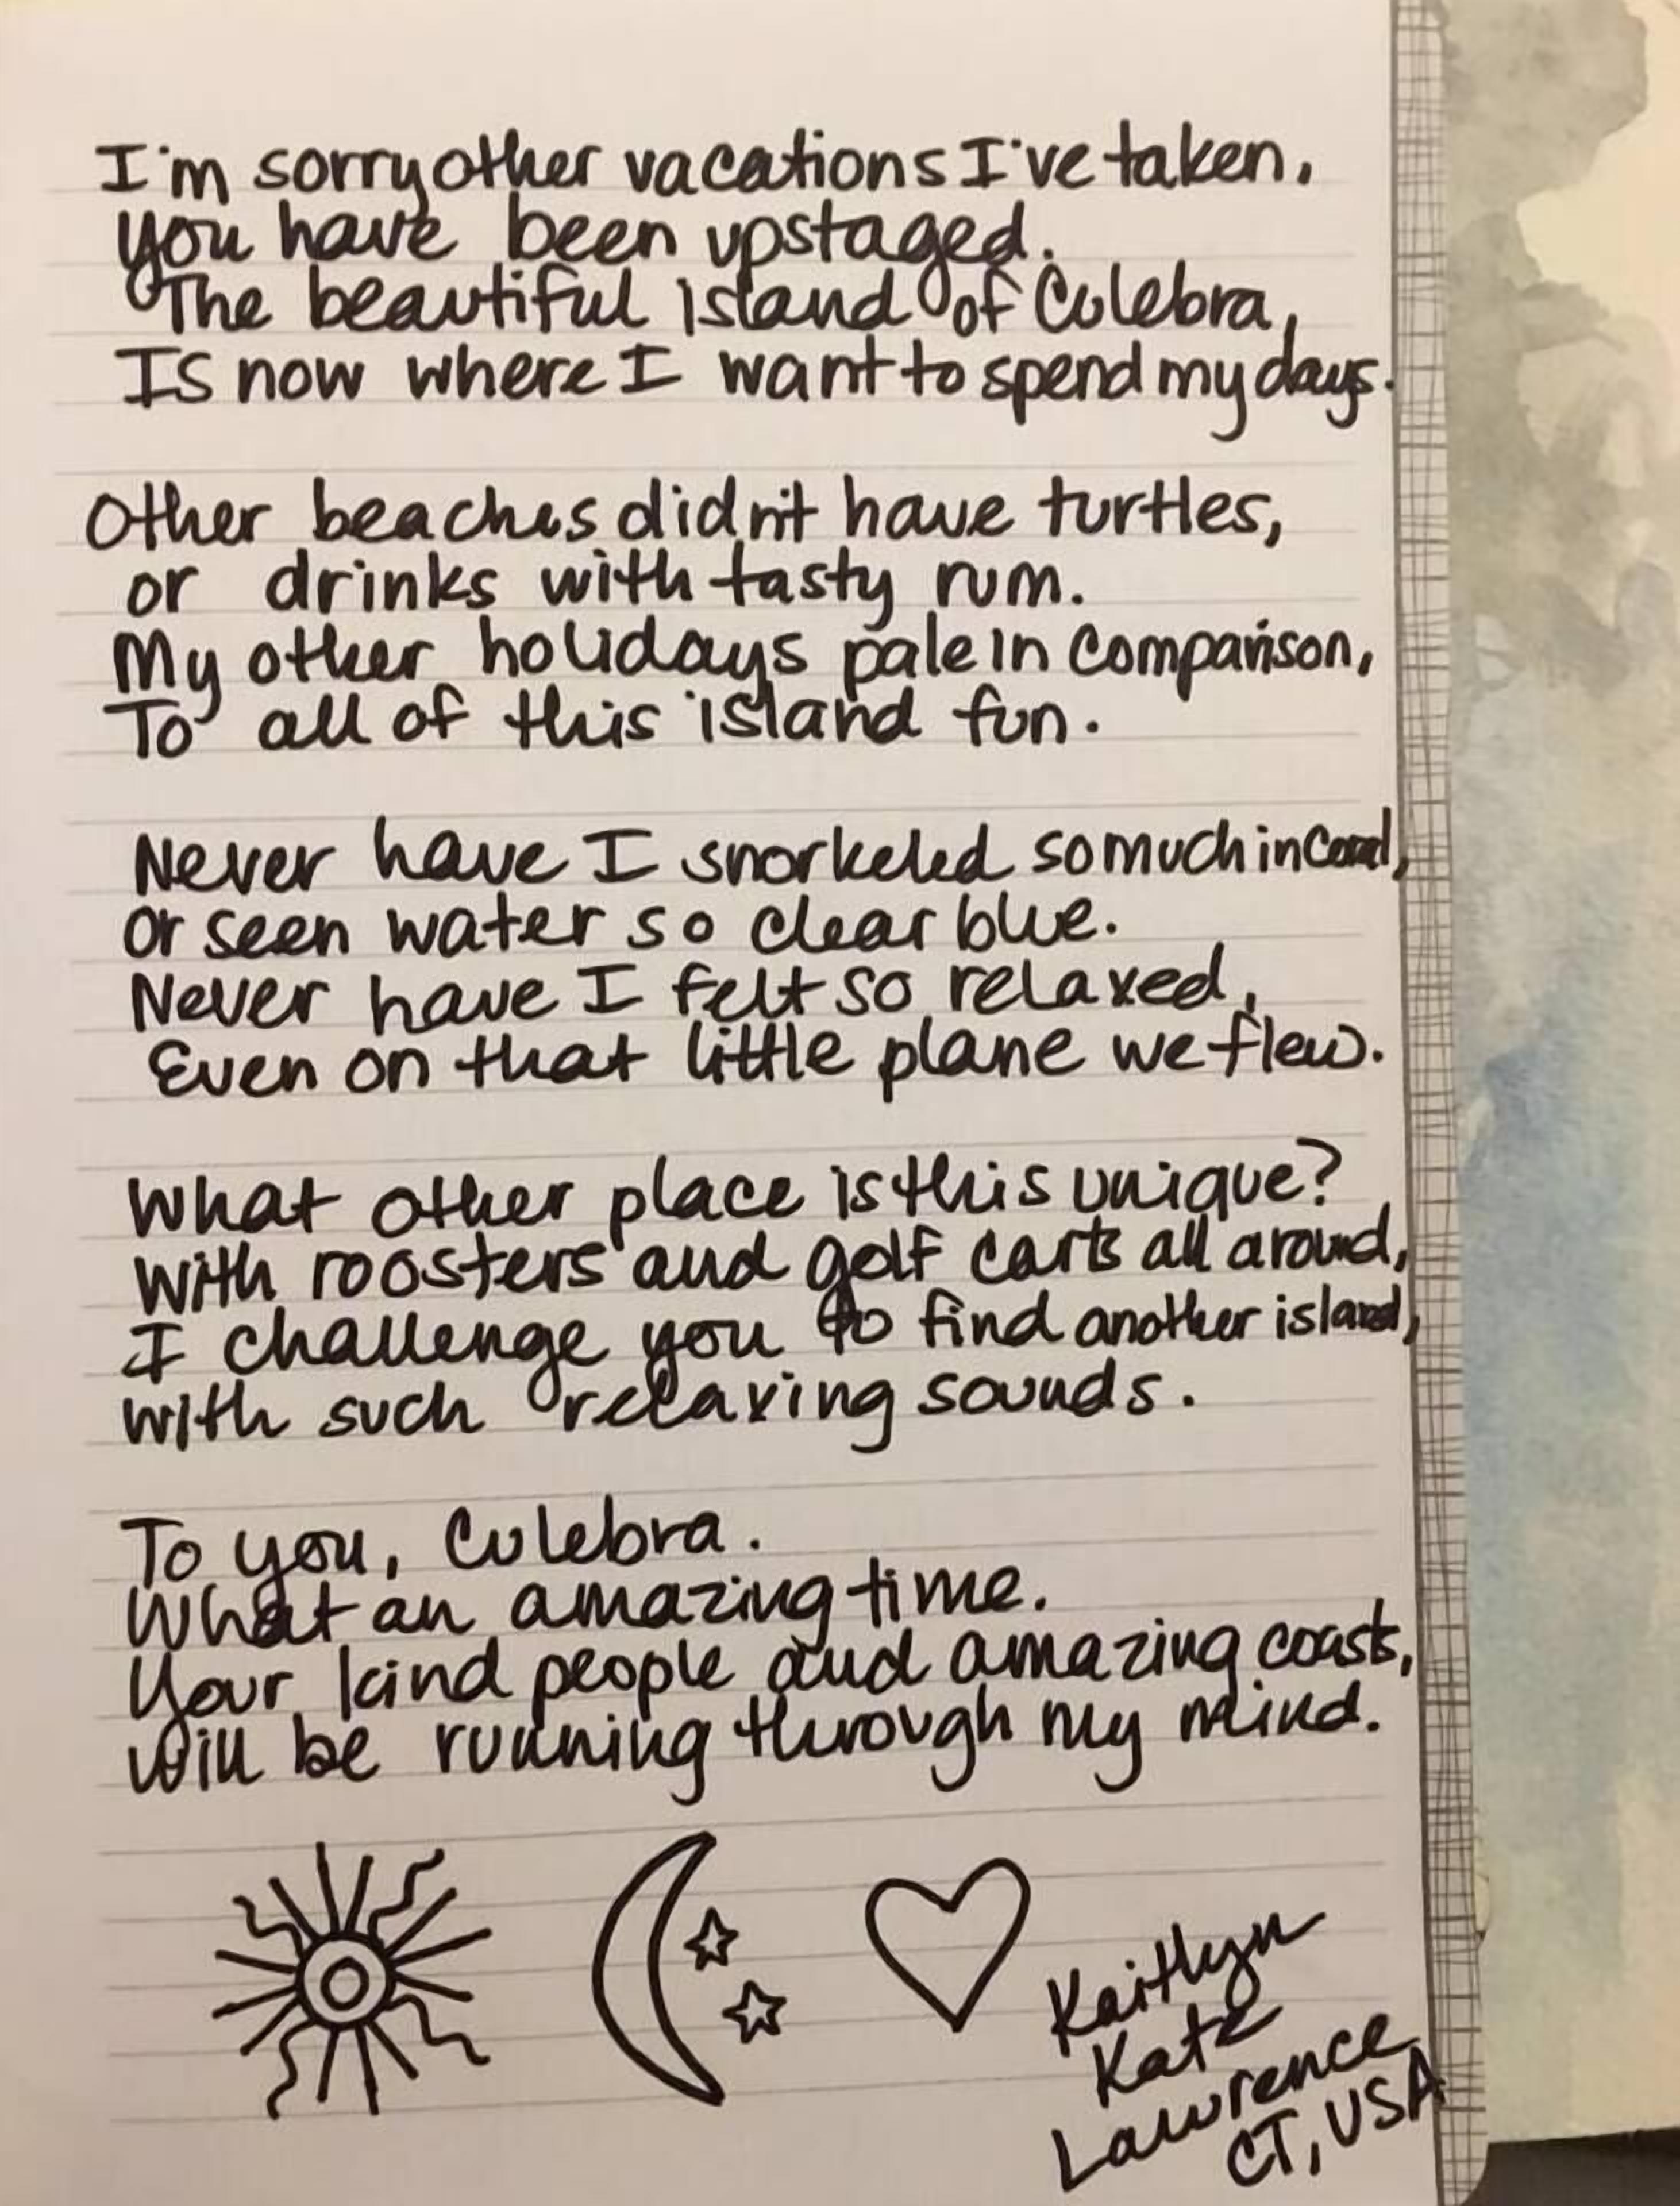 I'm sorry other vacations I've taken,
you have been upstaged.
The beautiful island of Culebra,
Is now where I want to spend my days.
Other beaches didn't have turtles,
or drinks with tasty rum.
My other holidays pale in comparison,
To all of this island fun.
Never have I snorkeled so much in coral,
or seen water so clear blue.
Never have I felt so relaxed,
Even on that little plane we flew.
What other place is this unique?
With roosters and golf carts all around,
I challenge you to find another island,
with such relaxing sounds.
To you, Culebra.
What an amazing time.
Your kind people and amazing coasts,
will be running through my mind.
Kaitlyn
Katz
Lawrence
CT, USA